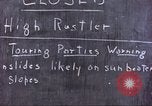 CLOSED
High Rustler
Touring Parties Warning
nslides likely on sun beaten
slopes